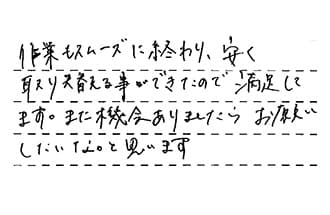 作業もスムーズに終わり、安く
取り替える事ができたので満足して
ます。また機会ありましたらお願い
したいな。と思います